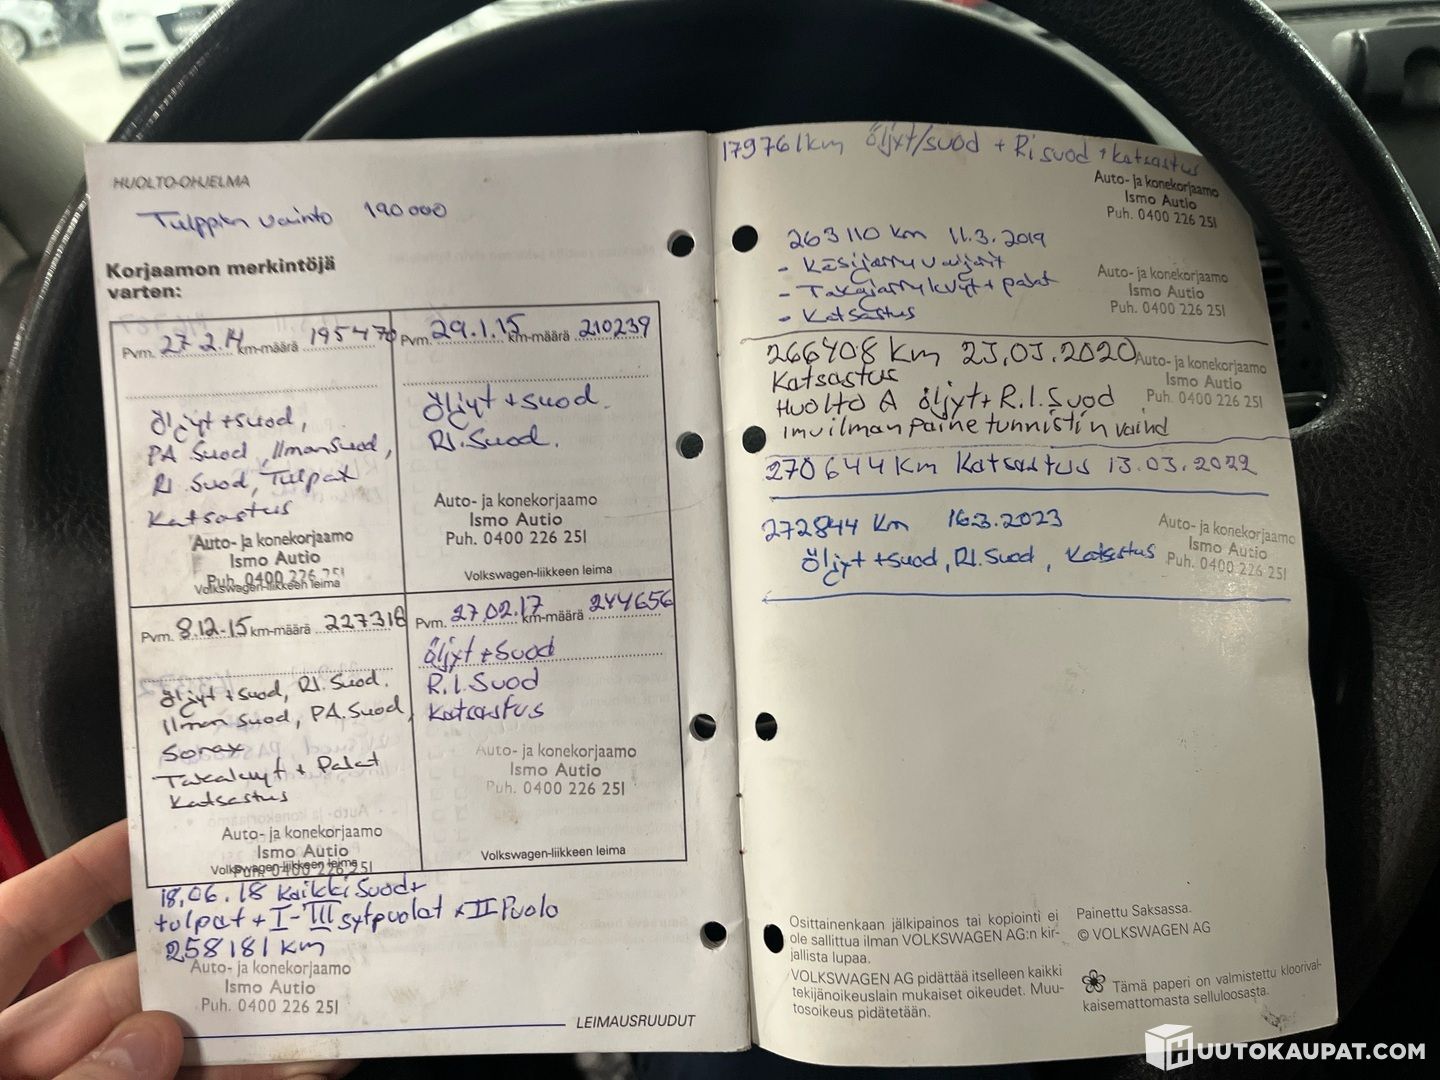 HUOLTO-OHJELMA
Tulppien vaihto 190000
Korjaamon merkintöjä
varten:
Pvm. 27.2.14 km-määrä 195470
Öljyt + suod,
PA Suod, Ilmansuod,
RI. Suod, Tulpat
Katsastus
Auto- ja konekorjaamo
Ismo Autio
Puh. 0400 226 251
Volkswagen-liikkeen leima
Pvm. 29.1.15 km-määrä 210239
Öljyt + suod.
RI. Suod.
Auto- ja konekorjaamo
Ismo Autio
Puh. 0400 226 251
Volkswagen-liikkeen leima
Pvm. 8.12-15 km-määrä 227318
Öljyt + suod, RI. Suod.
Ilman suod, PA. Suod,
Takakuyt + Palat
Katsastus
Auto- ja konekorjaamo
Ismo Autio
Puh. 0400 226 251
Volkswagen-liikkeen leima
Pvm. 27.02.17 km-määrä 244656
Öljyt + Suod
R.I. Suod
Katsastus
Auto- ja konekorjaamo
Ismo Autio
Puh. 0400 226 251
Volkswagen-liikkeen leima
18.06.18 Kaikki Suod +
tulpat + I-III sytpuolat x II Puola
258181 km
Auto- ja konekorjaamo
Ismo Autio
Puh. 0400 226 251
LEIMAUSRUUDUT
179761km Öljyt/suod + Ri suod + katsastus
Auto- ja konekorjaamo
Ismo Autio
Puh. 0400 226 251
263110 km 11.3.2019
- Käsijarru vaijerit
- Takajarrukuyt + palat
- Katsastus
Auto- ja konekorjaamo
Ismo Autio
Puh. 0400 226 251
266408 km 23.03.2020
Katsastus
Huolto A öljyt + R.I. Suod
imuilman paine tunnistin vaihd
Auto- ja konekorjaamo
Ismo Autio
Puh. 0400 226 251
270644 km Katsastus 13.03.2022
272844 km 16.3.2023
Öljyt + suod, RI. Suod, Katsastus
Auto- ja konekorjaamo
Ismo Autio
Puh. 0400 226 251
Osittainenkaan jälkipainos tai kopiointi ei
ole sallittua ilman VOLKSWAGEN AG:n kir-
jallista lupaa.
VOLKSWAGEN AG pidättää itselleen kaikki
tekijänoikeuslain mukaiset oikeudet. Muu-
tosoikeus pidätetään.
Painettu Saksassa.
© VOLKSWAGEN AG
Tämä paperi on valmistettu kloorival-
kaisemattomasta selluloosasta.
HUUTOKAUPAT.COM